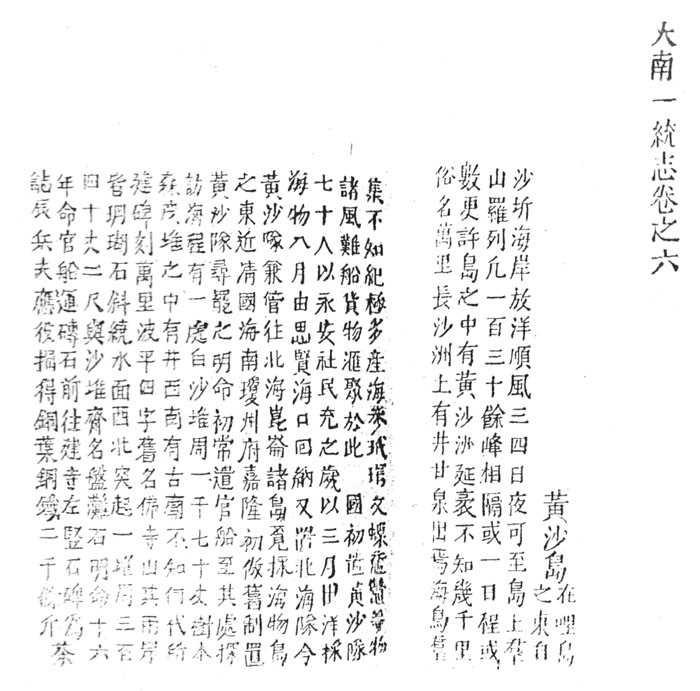 大南一統志卷之六
黃沙島在哩島
之東自
沙圻海岸放洋順風三四日夜可至島上群
山羅列凡一百三十餘峰相隔或一日程或
數更許島之中有黃沙洲延袤不知幾千里
俗名萬里長沙洲上有井甘泉出焉海鳥群
集不知紀極多產海參玳瑁文螺黿鱉等物
諸風難船貨物滙聚於此 國初置黃沙隊
七十人以永安社民充之歲以三月出洋採
海物八月由思賢海口回納又置北海隊令
黃沙隊兼管往北海崑崙諸島覓採海物島
之東近清國海南瓊州府嘉隆初倣舊制置
黃沙隊尋罷之明命初常遣官船至其處探
訪海程有一處白沙堆周一千七十丈樹木
森茂堆之中有井西南有古廟不知何代所
建碑刻萬里波平四字舊名佛寺山其兩岸
皆珊瑚石斜繞水面西北突起一堆周三百
四十丈二尺與沙堆齊名盤灘石明命十六
年命官船運磚石前往建寺左竪石碑為
誌辰兵夫應役掘得銅葉銅鐵二千餘斤